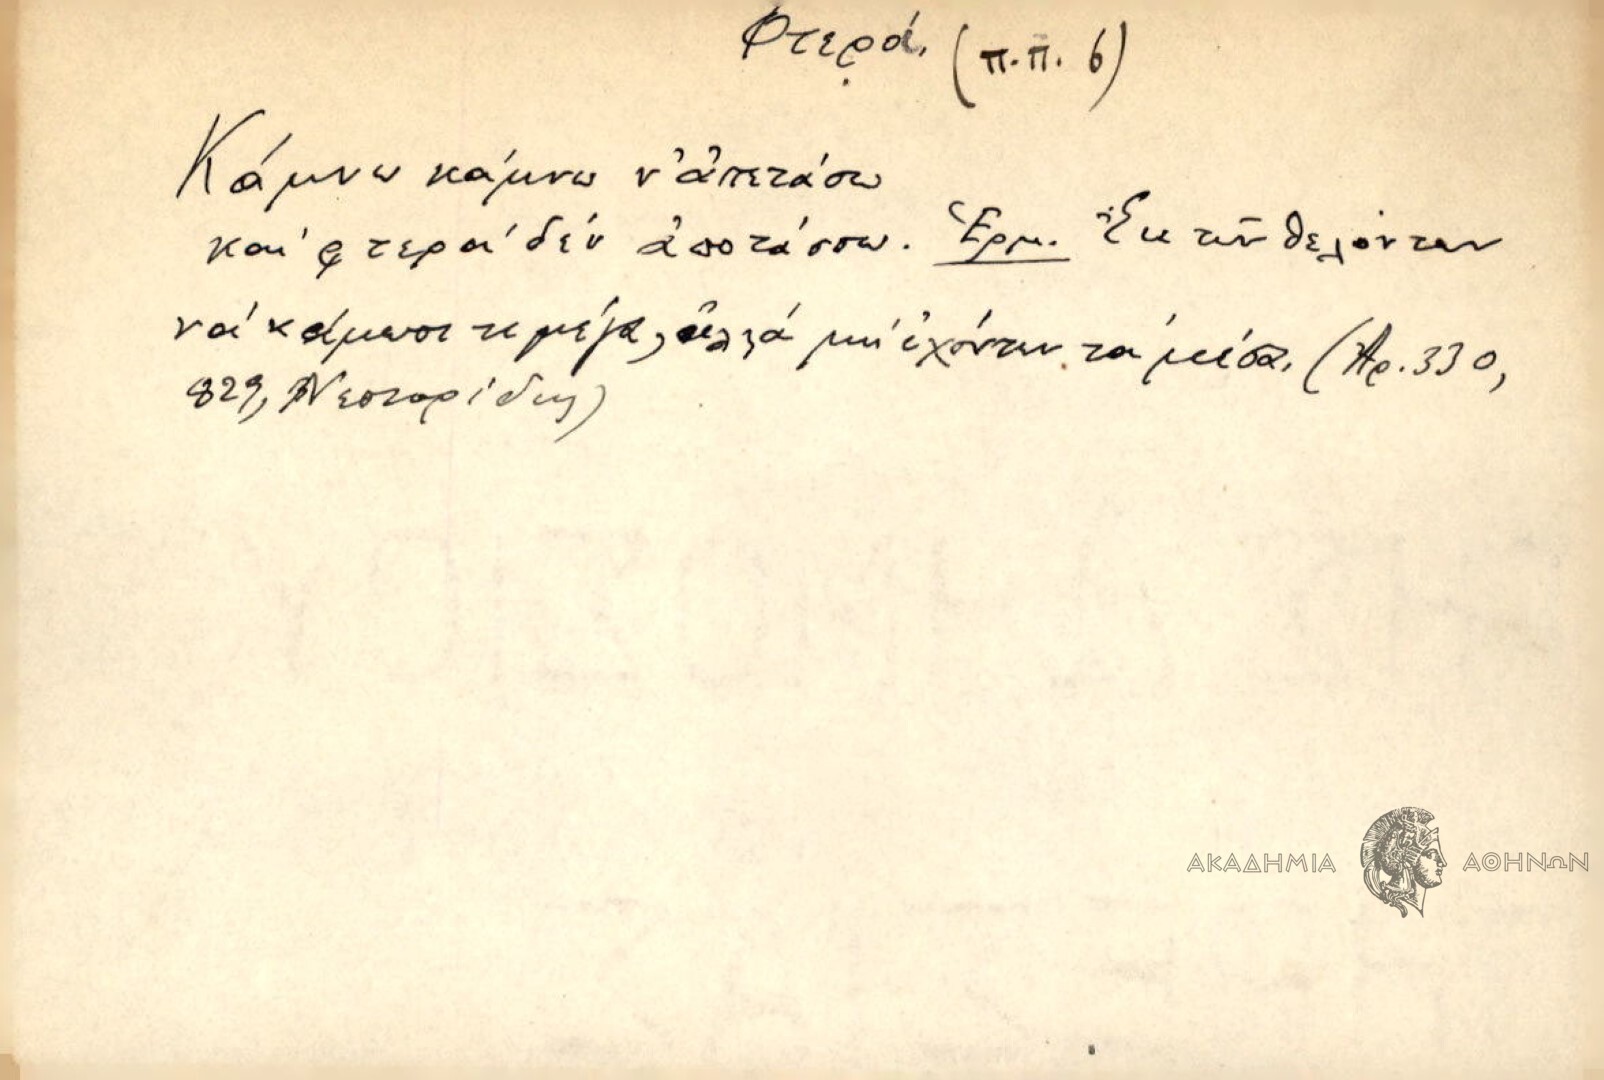 Φτερά. (π.π. 6)
Κάμνω κάμνω ν' ἀπετάσω
καί φτερά δέν ἀποτάσσω. Ἑρμ. Ἐκ τῶν θελόντων
νά κάμωσι τι μέγα, ἀλλά μή ἐχόντων τά μέσα. (Αρ. 330,
829, Νεστορίδης)
ΑΚΑΔΗΜΙΑ ΑΘΗΝΩΝ